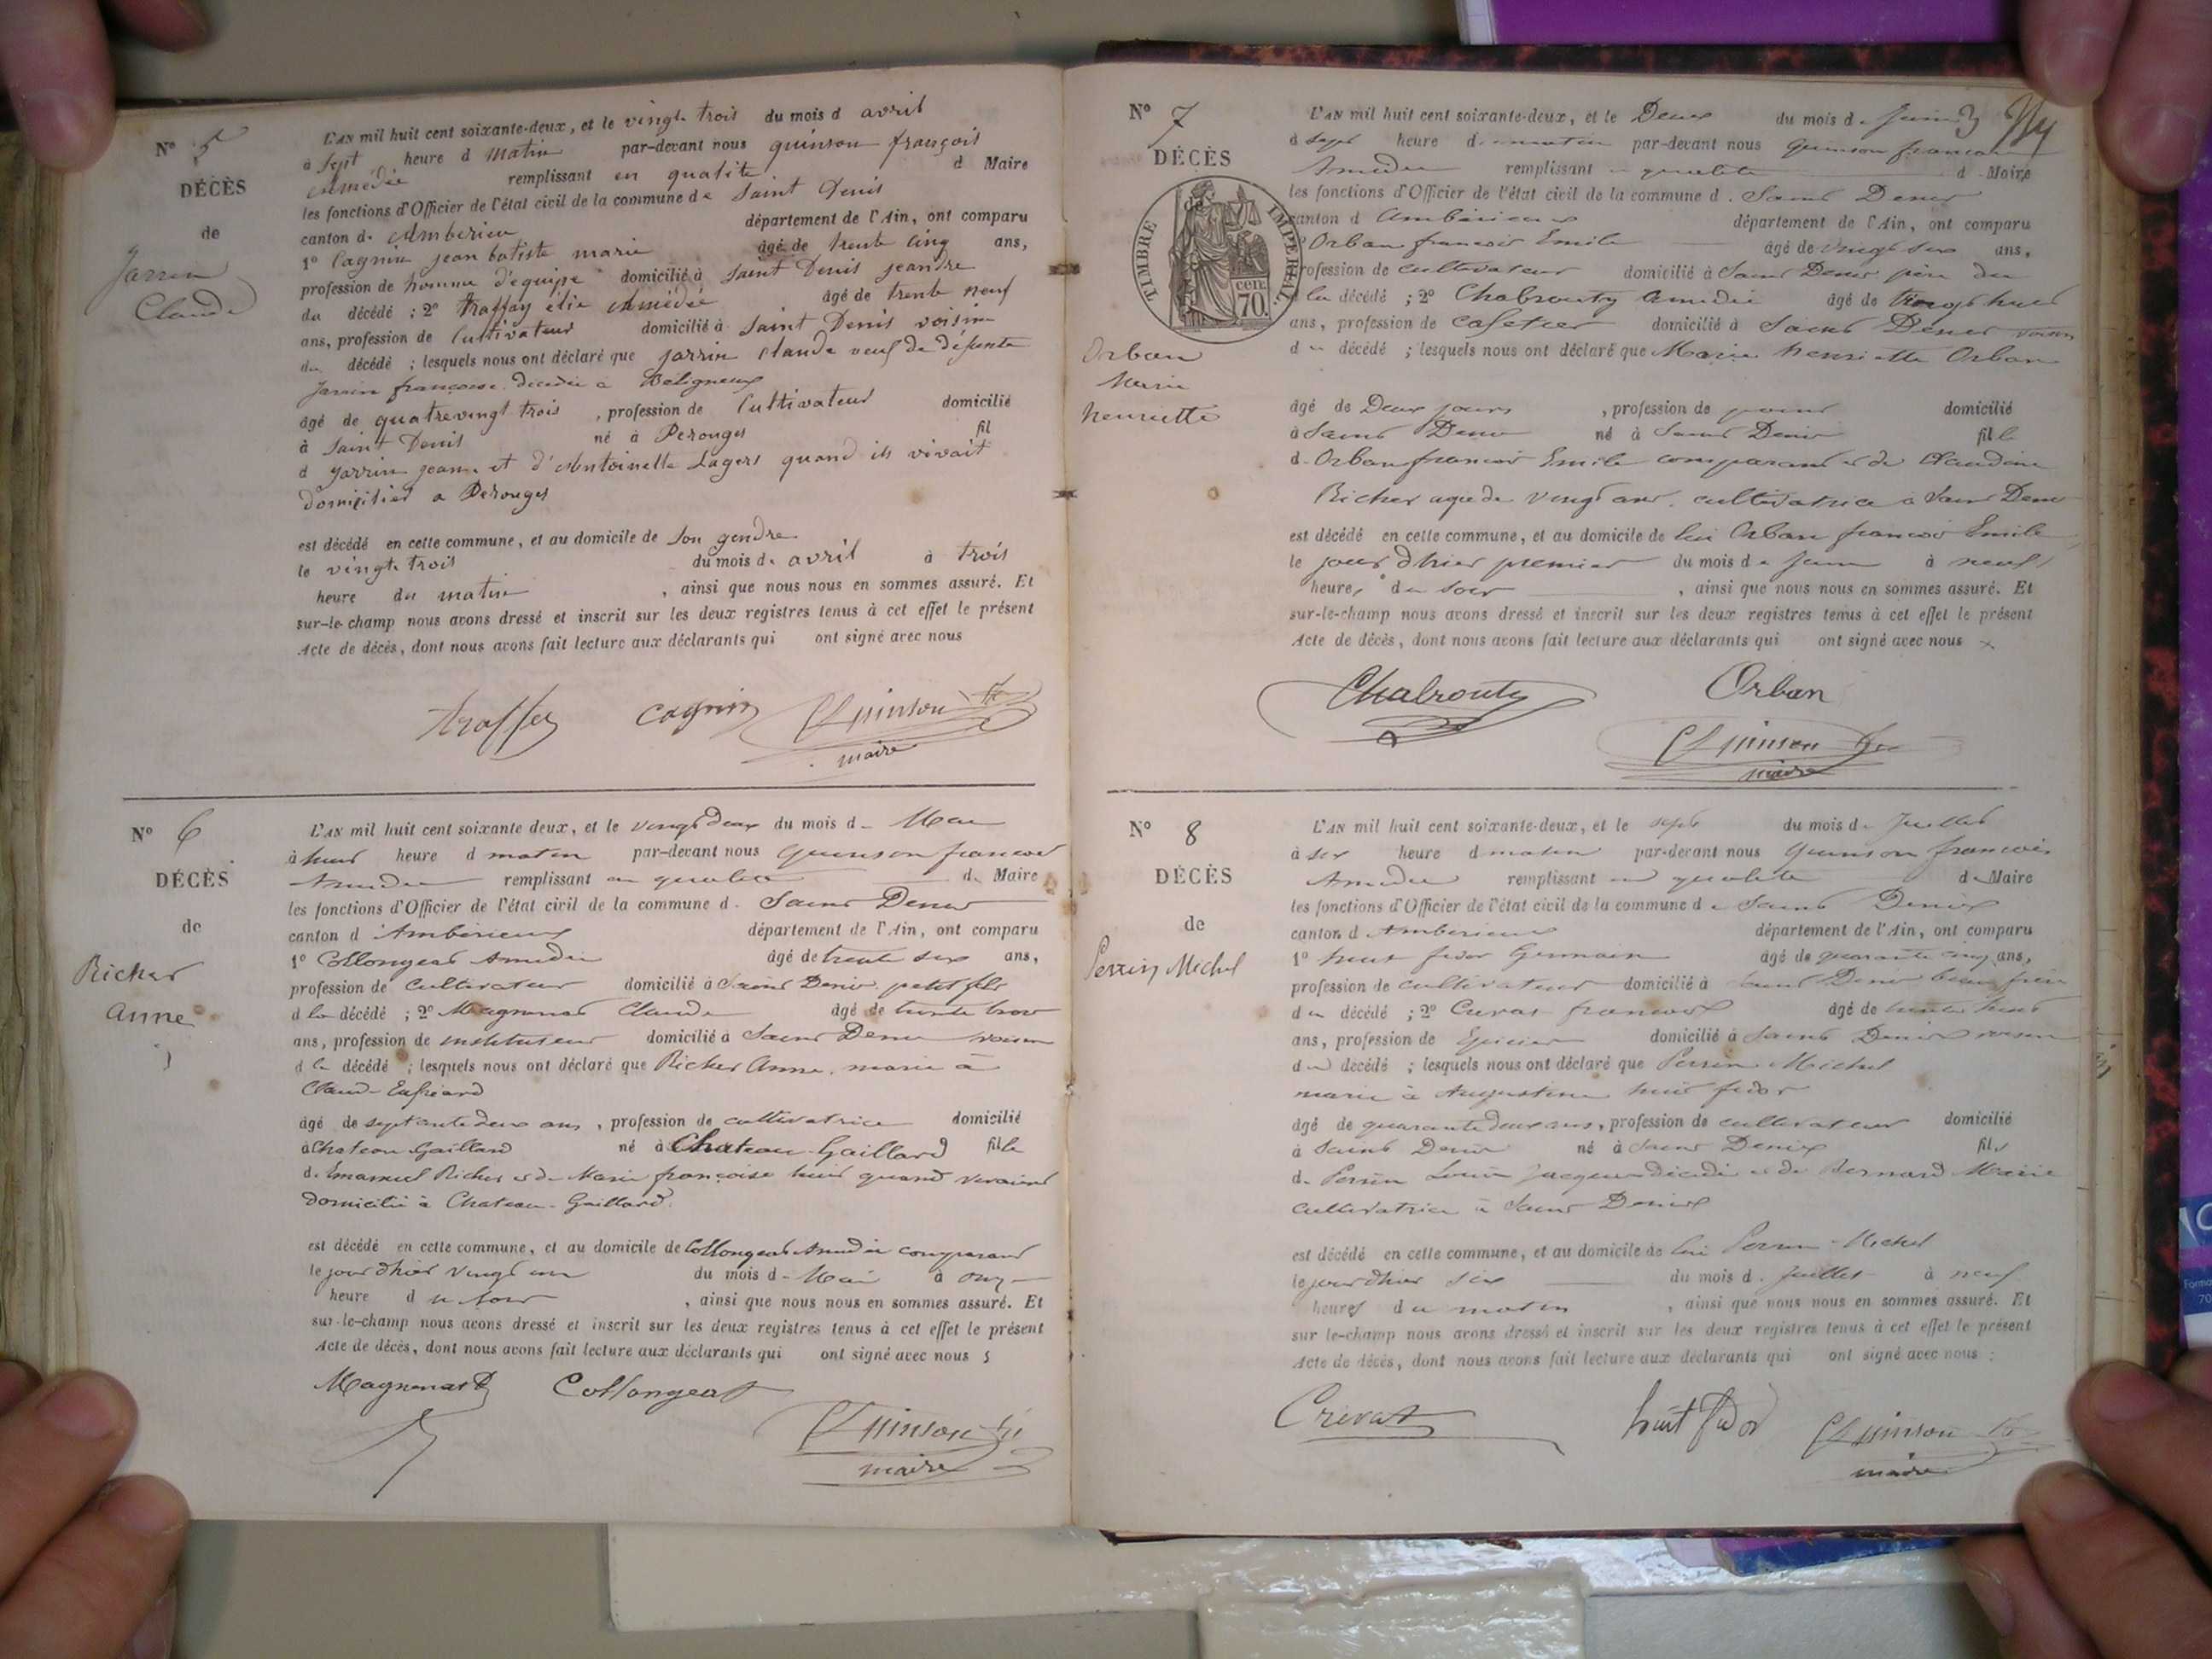 N° 5
DÉCÈS
de
Jarrin
Claude
L'AN mil huit cent soixante-deux, et le vingt trois du mois d avril
à sept heure d matin par-devant nous quinson françois
amédée remplissant en qualité d Maire
les fonctions d'Officier de l'état civil de la commune de Saint Denis
canton d. Amberieu département de l'Ain, ont comparu
1° Cagnin jean batiste marie âgé de trente cinq ans,
profession de homme d'équipe domicilié à Saint Denis jeandre
du décédé ; 2° traffay élie amédée âgé de trente neuf
ans, profession de Cultivateur domicilié à Saint Denis voisin
du décédé ; lesquels nous ont déclaré que jarrin claude veuf de défunte
Jarrin françoise décédée a Béligneux
âgé de quatrevingt trois , profession de Cultivateur domicilié
à Saint Denis né à Perouges fil
d jarrin jean et d'Antoinette Lagers quand ils vivait
Domicilies a Perouges
est décédé en cette commune, et au domicile de Son gendre
le vingt trois du mois d. avril à trois
heure du matin , ainsi que nous nous en sommes assuré. Et
sur-le-champ nous avons dressé et inscrit sur les deux registres tenus à cet effet le présent
Acte de décès, dont nous avons fait lecture aux déclarants qui ont signé avec nous
traffey cagnin Quinson
maire
N° 6
DÉCÈS
de
Richer
Anne
L'AN mil huit cent soixante deux, et le vingt deux du mois d Mai
à huit heure d matin par-devant nous Quinson francois
Amedee remplissant en qualite de Maire
les fonctions d'Officier de l'état civil de la commune d. Saint Denis
canton d Amberieux département de l'Ain, ont comparu
1° Collongeat Amedee âgé de trente six ans,
profession de Cultivateur domicilié à Saint Denis petit fils
d la décédé ; 2° Magnenat Claude âgé de trente trois
ans, profession de instituteur domicilié à Saint Denis voisin
d la décédé ; lesquels nous ont déclaré que Richer Anne, marie à
Claude
âgé de septante deux ans , profession de cultivatrice domicilié
à Chateau Gaillard né à Chateau Gaillard fille
d. Emanuel Richer et de Marie françoise huit quand vivaient
Domicilié à Chateau-Gaillard
est décédé en cette commune, et au domicile de Collongeat Amedee comparant
le jour dhier vingt un du mois d Mai à onze
heure du soir , ainsi que nous nous en sommes assuré. Et
sur-le-champ nous avons dressé et inscrit sur les deux registres tenus à cet effet le présent
Acte de décès, dont nous avons fait lecture aux déclarants qui ont signé avec nous
Magnenat Collongeat
Quinson
maire
N° 7
DÉCÈS
de
TIMBRE IMPERIAL
70 cen.
Orban
Marie
henriette
L'AN mil huit cent soixante-deux, et le Deux du mois d. Juin
à sept heure d. matin par-devant nous Quinson francois
Amedee remplissant en qualite d Maire
les fonctions d'Officier de l'état civil de la commune d. Saint Denis
canton d Ambérieux département de l'Ain, ont comparu
1° Orban francois Emile âgé de vingt six ans,
profession de cultivateur domicilié à Saint Denis père du
d la décédé ; 2° Chabrouty Amedee âgé de huit
ans, profession de Cafetier domicilié à Saint Denis voisin
d décédé ; lesquels nous ont déclaré que Marie henriette Orban
âgé de Deux jours , profession de domicilié
à Saint Denis né à Saint Denis fille
d. Orban francois Emile comparant et de Claudine
Richer agée de vingt ans, cultivatrice a Saint Denis
est décédé en cette commune, et au domicile de lui Orban francois Emile
le jour d'hier premier du mois de Juin à neuf
heure, du soir , ainsi que nous nous en sommes assuré. Et
sur-le-champ nous avons dressé et inscrit sur les deux registres tenus à cet effet le présent
Acte de décès, dont nous avons fait lecture aux déclarants qui ont signé avec nous
Chabrouty Orban
Quinson
maire
N° 8
DÉCÈS
de
Perrin Michel
L'AN mil huit cent soixante-deux, et le sept du mois d. Juillet
à six heure d matin par-devant nous Quinson francois
Amedee remplissant en qualite de Maire
les fonctions d'Officier de l'état civil de la commune de Saint Denis
canton d Amberieux département de l'Ain, ont comparu
1° huit fidor Germain âgé de quarante cinq ans,
profession de cultivateur domicilié à Saint Denis beau frère
du décédé ; 2° Crevat francois âgé de trente huit
ans, profession de Epicier domicilié à Saint Denis voisin
du décédé ; lesquels nous ont déclaré que Perrin Michel
marie à Augustine huit fidor
âgé de quarante deux ans, profession de cultivateur domicilié
à Saint Denis né à Saint Denis fils
d. Perrin Louis Jacques décédé et de Bernard Marie
cultivatrice à Saint Denis
est décédé en cette commune, et au domicile de lui Perrin Michel
le jour dhier six du mois d. Juillet à neuf
heures du matin , ainsi que nous nous en sommes assuré. Et
sur le-champ nous avons dressé et inscrit sur les deux registres tenus à cet effet le présent
Acte de décès, dont nous avons fait lecture aux déclarants qui ont signé avec nous :
Crevat huit fidor Quinson
maire